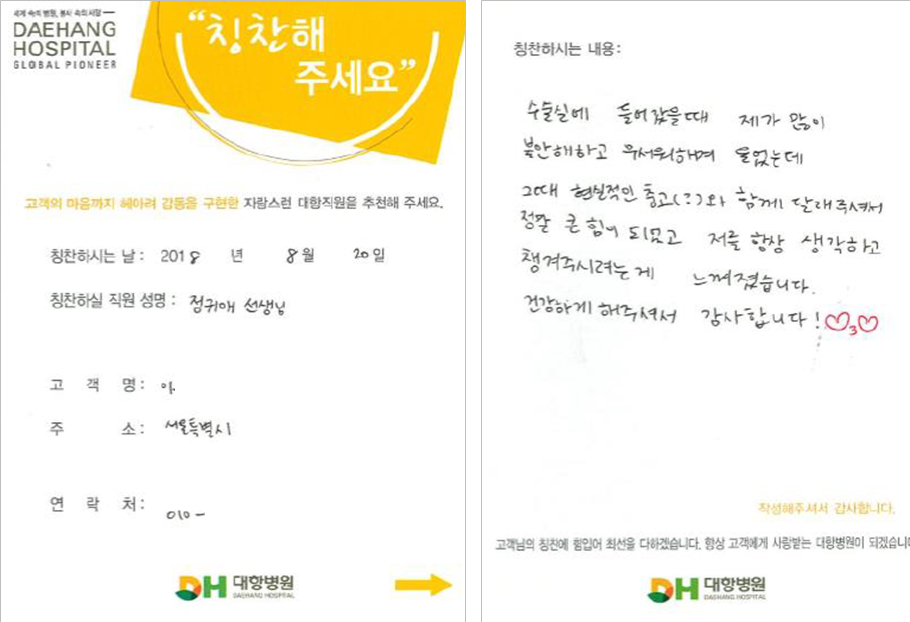 세계 속의 병원, 봉사 속의 사랑
DAEHANG
HOSPITAL
GLOBAL PIONEER
“칭찬해
주세요”
고객의 마음까지 헤아려 감동을 구현한 자랑스런 대항직원을 추천해 주세요.
칭찬하시는 날 : 2018 년 8월 20일
칭찬하실 직원 성명 : 정귀애 선생님
고 객 명 : 이.
주 소 : 서울특별시
연 락 처 : 010 -
DH 대항병원
DAEHANG HOSPITAL
칭찬하시는 내용 :
수술실에 들어갔을때 제가 많이
불안해하고 무서워해며 울었는데
그때 현실적인 충고(?)와 함께 달래주셔서
정말 큰 힘이 되었고 저를 항상 생각하고
챙겨주시려는게 느껴졌습니다.
건강하게 해주셔서 감사합니다! ♡3♡
작성해주셔서 감사합니다.
고객님의 칭찬에 힘입어 최선을 다하겠습니다. 항상 고객에게 사랑받는 대항병원이 되겠습니다
DH 대항병원
DAEHANG HOSPITAL